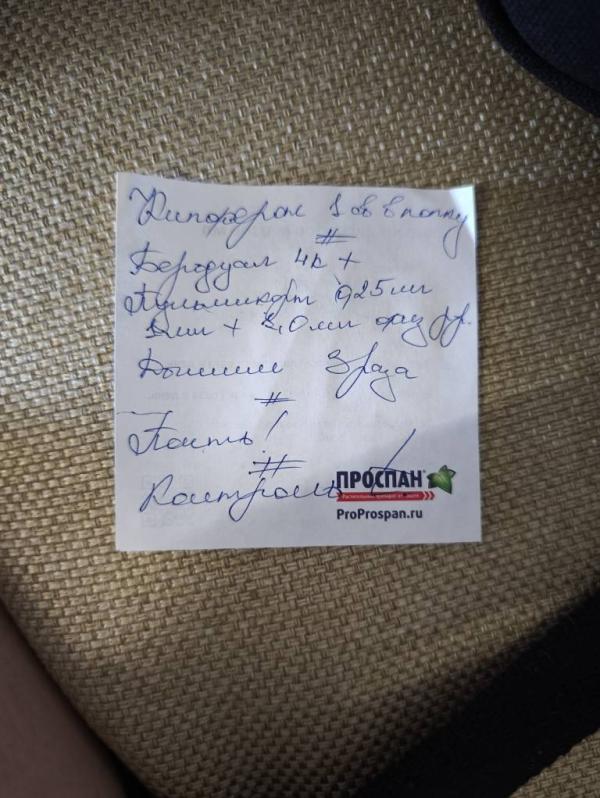 Кипферон 1 св в попку
#
Беродуал 4к +
Пульмикорт 0,25 мг
мл + 2,0 мл физ рр.
Дышим 3 раза
#
Поить!
#
Контроль
ПРОСПАН®
ProProspan.ru